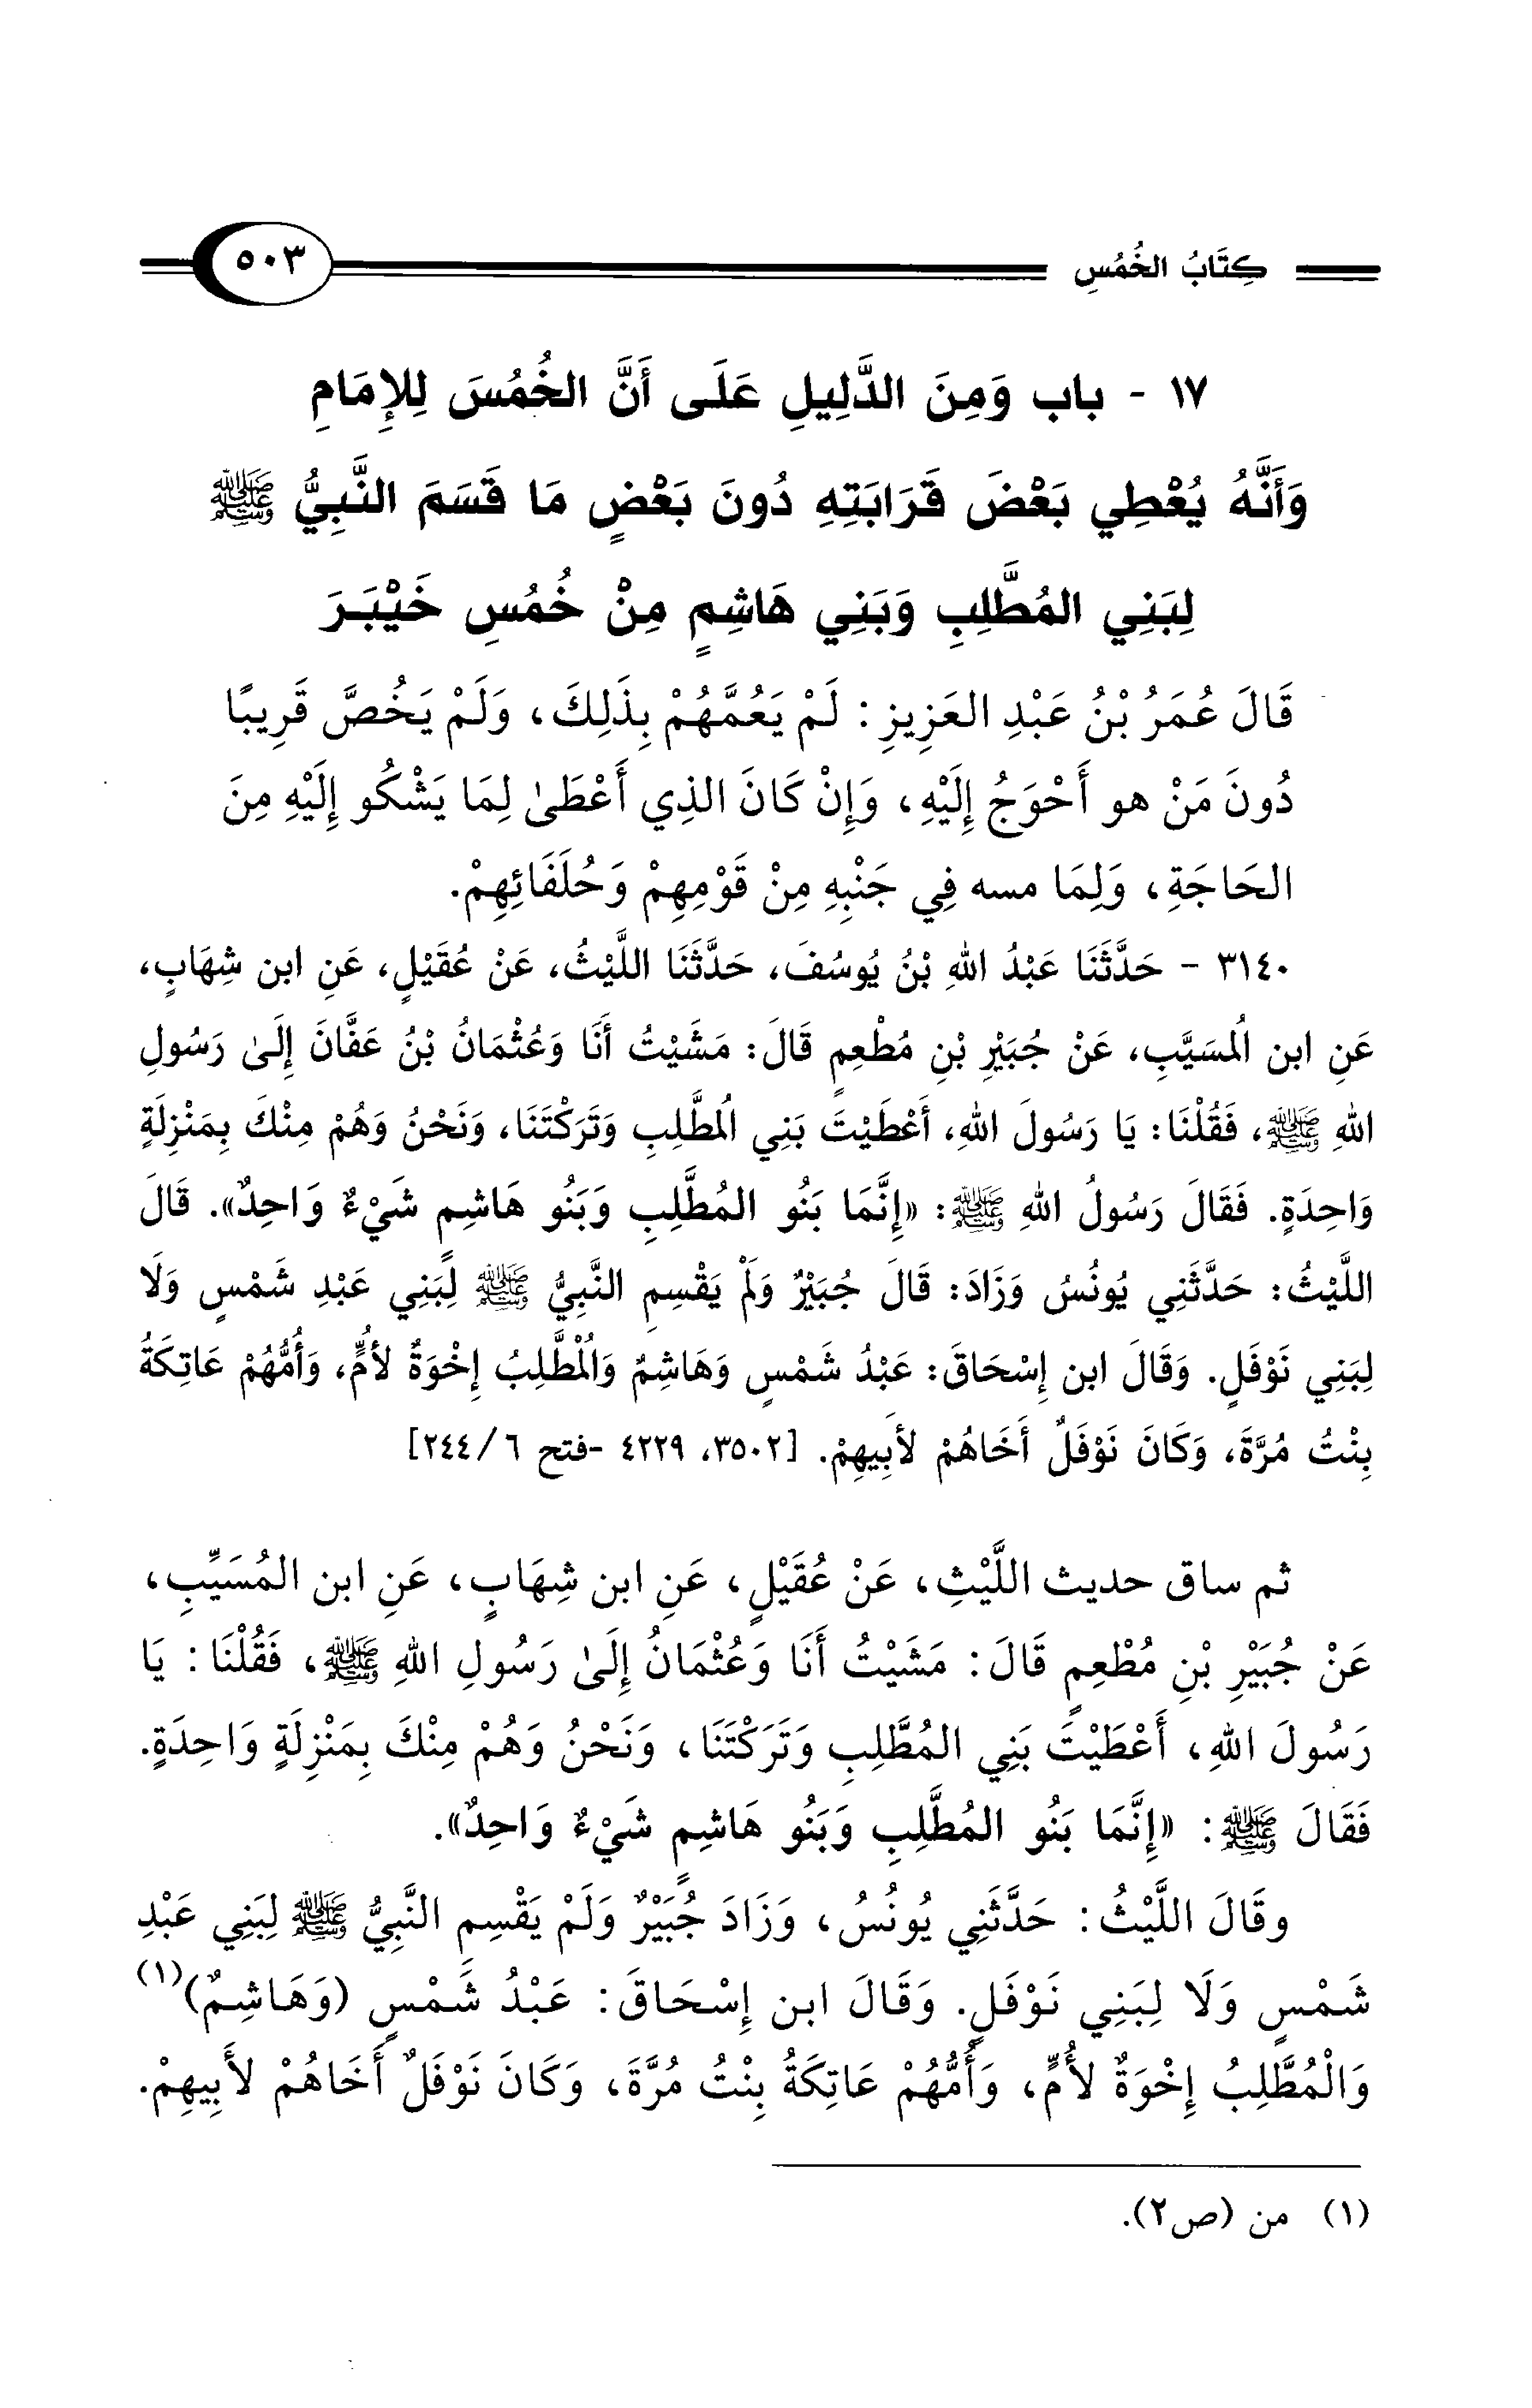 كِتَابُ الخُمُسِ ٥٠٣
١٧ - باب وَمِنَ الدَّلِيلِ عَلَى أَنَّ الخُمُسَ لِلإِمَامِ
وَأَنَّهُ يُعْطِي بَعْضَ قَرَابَتِهِ دُونَ بَعْضٍ مَا قَسَمَ النَّبِيُّ ﷺ
لِبَنِي المُطَّلِبِ وَبَنِي هَاشِمٍ مِنْ خُمُسِ خَيْبَرَ
قَالَ عُمَرُ بْنُ عَبْدِ العَزِيزِ: لَمْ يَعُمَّهُمْ بِذَلِكَ، وَلَمْ يَخُصَّ قَرِيبًا
دُونَ مَنْ هو أَحْوَجُ إِلَيْهِ، وَإِنْ كَانَ الذِي أَعْطَىٰ لِمَا يَشْكُو إِلَيْهِ مِنَ
الحَاجَةِ، وَلِمَا مسه فِي جَنْبِهِ مِنْ قَوْمِهِمْ وَحُلَفَائِهِمْ.
٣١٤٠ - حَدَّثَنَا عَبْدُ اللهِ بْنُ يُوسُفَ، حَدَّثَنَا اللَّيْثُ، عَنْ عُقَيْلٍ، عَنِ ابن شِهَابٍ،
عَنِ ابن الُمسَيَّبِ، عَنْ جُبَيْرِ بْنِ مُطْعِمٍ قَالَ: مَشَيْتُ أَنَا وَعُثْمَانُ بْنُ عَفَّانَ إِلَىٰ رَسُولِ
اللهِ ﷺ، فَقُلْنَا: يَا رَسُولَ اللهِ، أَعْطَيْتَ بَنِي الُمطَّلِبِ وَتَرَكْتَنَا، وَنَحْنُ وَهُمْ مِنْكَ بِمَنْزِلَةٍ
وَاحِدَةٍ. فَقَالَ رَسُولُ اللهِ ﷺ: «إِنَّمَا بَنُو المُطَّلِبِ وَبَنُو هَاشِمٍ شَيْءٌ وَاحِدٌ». قَالَ
اللَّيْثُ: حَدَّثَنِي يُونُسُ وَزَادَ: قَالَ جُبَيْرٌ وَلَمْ يَقْسِمِ النَّبِيُّ ﷺ لِبَنِي عَبْدِ شَمْسٍ وَلَا
لِبَنِي نَوْفَلٍ. وَقَالَ ابن إِسْحَاقَ: عَبْدُ شَمْسٍ وَهَاشِمٌ وَالْمُطَّلِبُ إِخْوَةٌ لأُمٍّ، وَأُمُّهُمْ عَاتِكَةُ
بِنْتُ مُرَّةَ، وَكَانَ نَوْفَلٌ أَخَاهُمْ لأَبِيهِمْ. [٣٥٠٢، ٤٢٢٩ -فتح ٦/ ٢٤٤]
ثم ساق حديث اللَّيْثِ، عَنْ عُقَيْلٍ، عَنِ ابن شِهَابٍ، عَنِ ابن المُسَيِّبِ،
عَنْ جُبَيْرِ بْنِ مُطْعِمٍ قَالَ: مَشَيْتُ أَنَا وَعُثْمَانُ إِلَىٰ رَسُولِ اللهِ ﷺ، فَقُلْنَا: يَا
رَسُولَ اللهِ، أَعْطَيْتَ بَنِي المُطَّلِبِ وَتَرَكْتَنَا، وَنَحْنُ وَهُمْ مِنْكَ بِمَنْزِلَةٍ وَاحِدَةٍ.
فَقَالَ ﷺ: «إِنَّمَا بَنُو المُطَّلِبِ وَبَنُو هَاشِمٍ شَيْءٌ وَاحِدٌ».
وقَالَ اللَّيْثُ: حَدَّثَنِي يُونُسُ، وَزَادَ جُبَيْرٌ وَلَمْ يَقْسِمِ النَّبِيُّ ﷺ لِبَنِي عَبْدِ
شَمْسٍ وَلَا لِبَنِي نَوْفَلٍ. وَقَالَ ابن إِسْحَاقَ: عَبْدُ شَمْسٍ (وَهَاشِمٌ)(١)
وَالْمُطَّلِبُ إِخْوَةٌ لأُمٍّ، وَأُمُّهُمْ عَاتِكَةُ بِنْتُ مُرَّةَ، وَكَانَ نَوْفَلٌ أَخَاهُمْ لأَبِيهِمْ.
(١) من (ص٢).